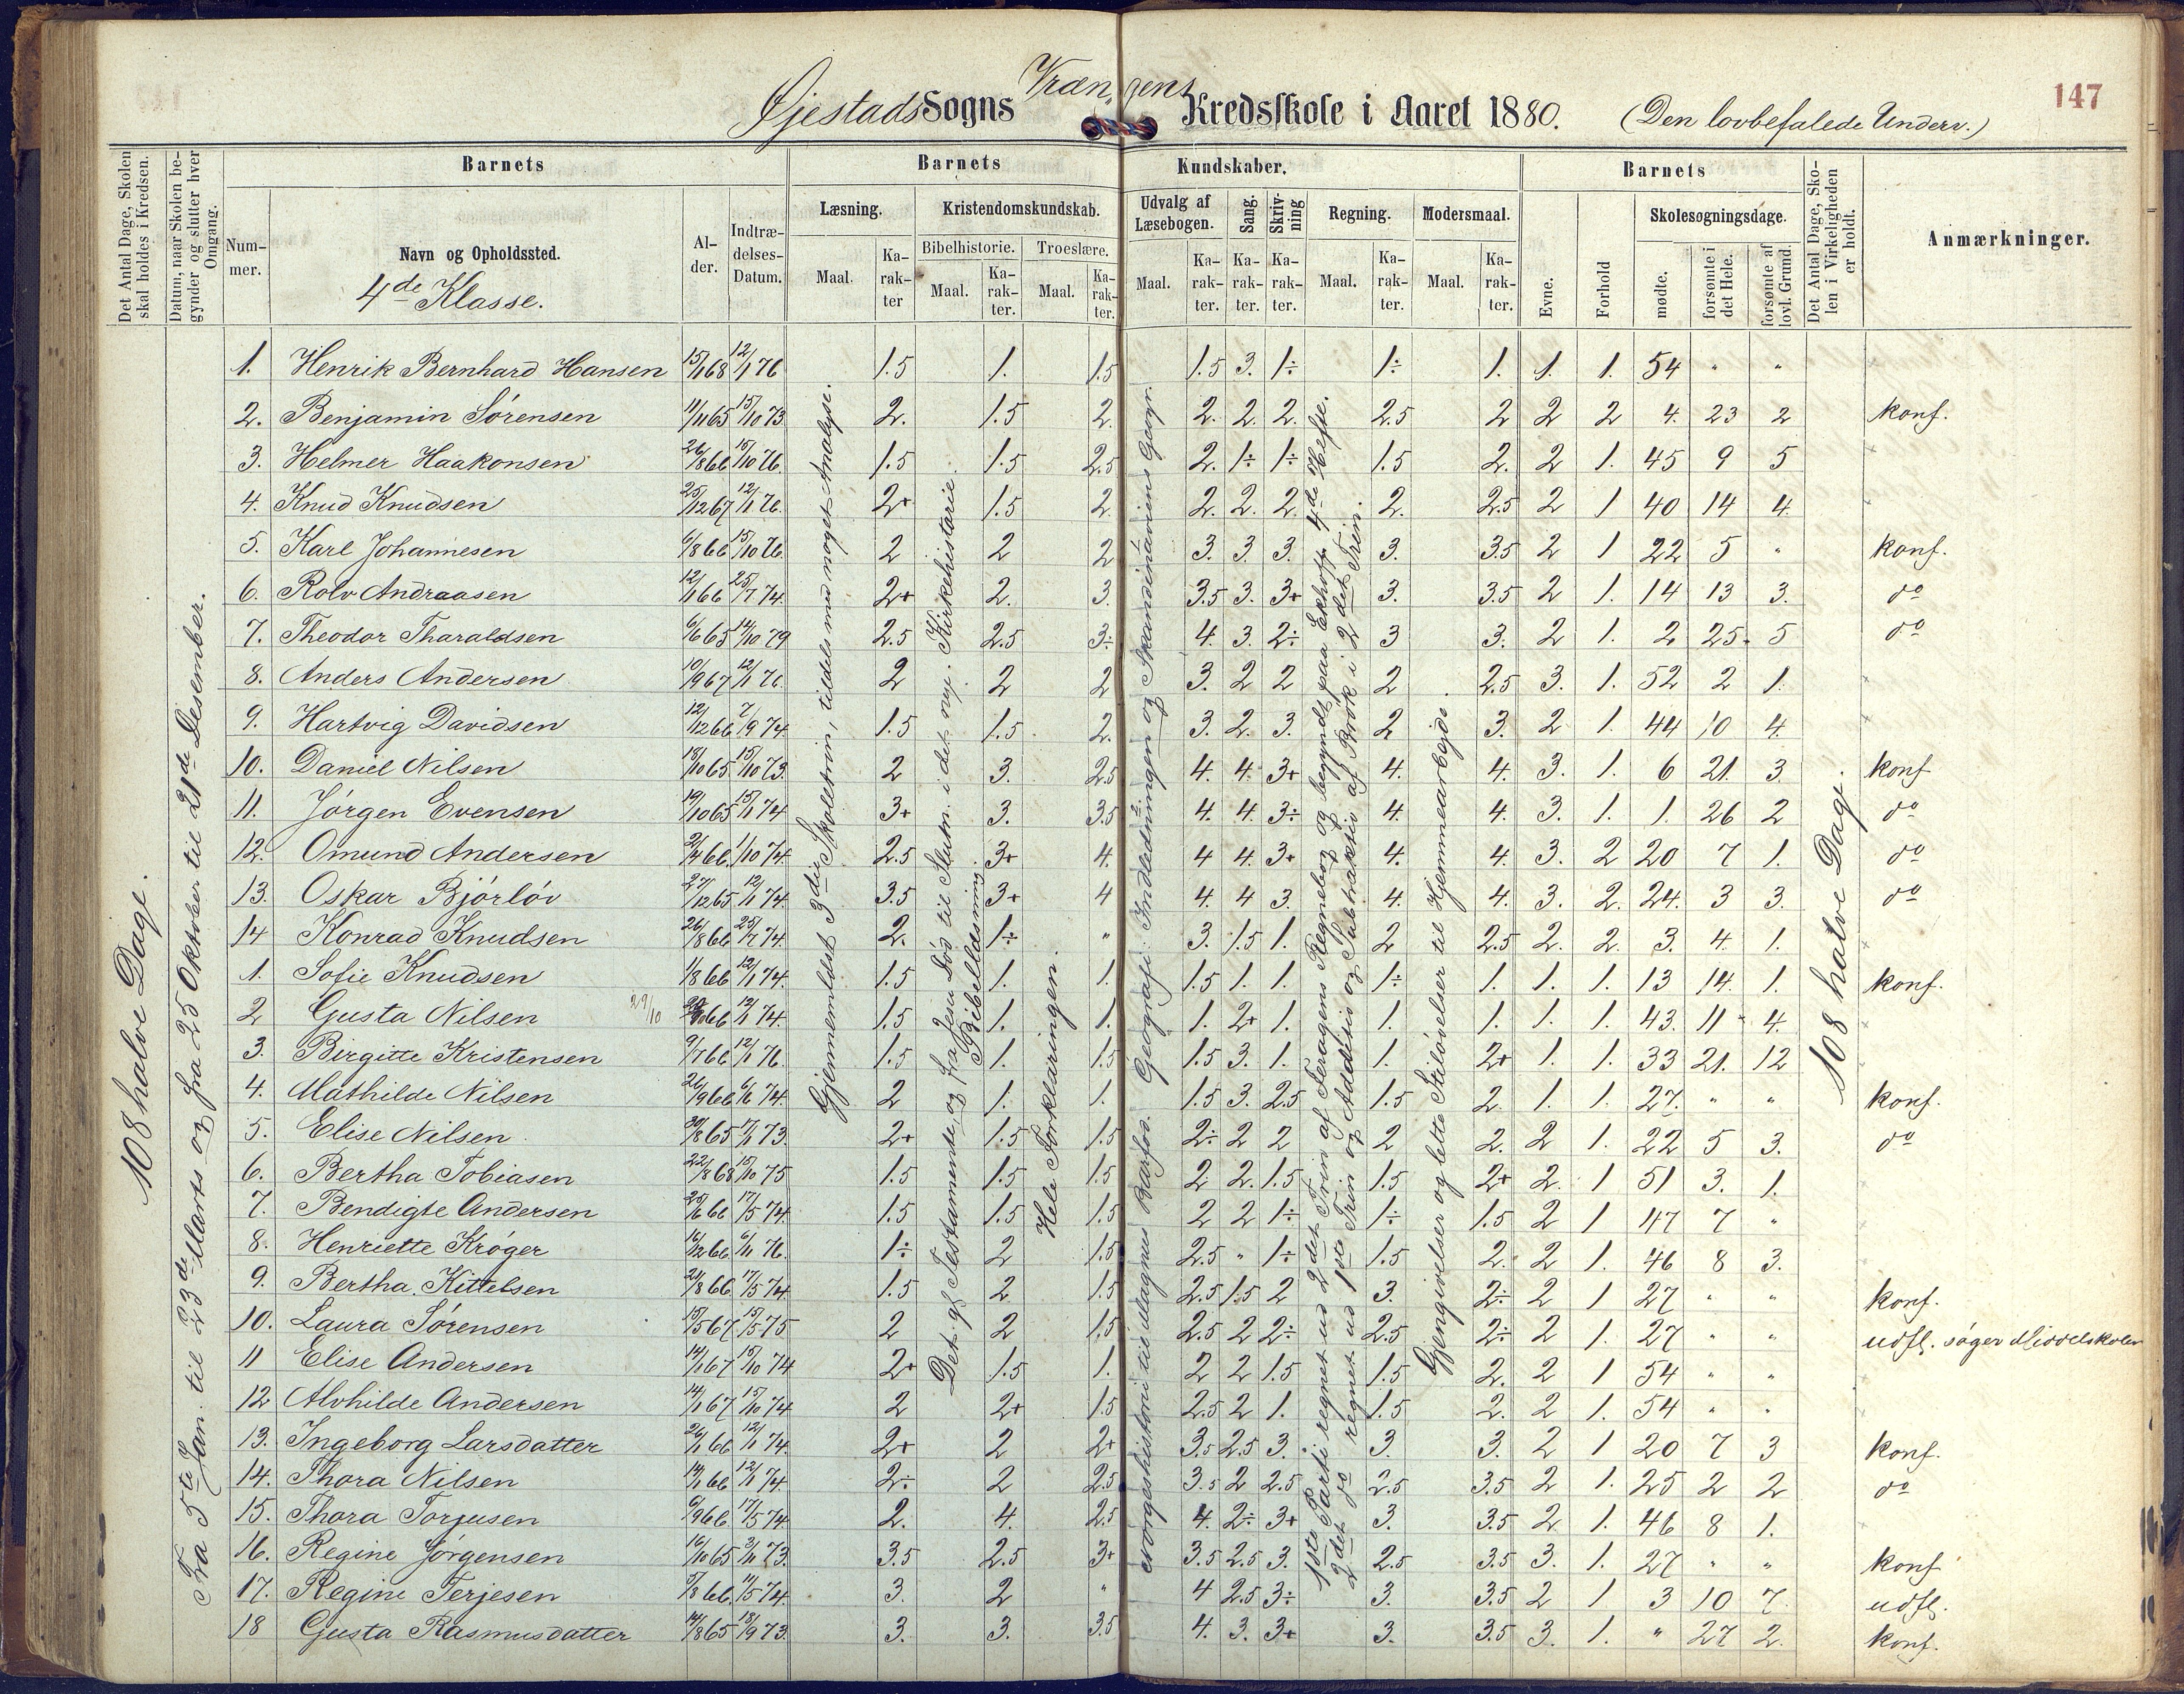 Øjestads Sogns Vrængens Kredsskole i Aaret 1880. (Den lovbefalede Underv.)
147
Det Antal Dage, Skolen skal holdes i Kredsen.
Datum, naar Skolen begynder og slutter hver Omgang.
Barnets
Nummer.
Navn og Opholdssted.
4de Klasse.
Alder.
Indtrædelses-Datum.
Barnets Kundskaber.
Læsning.
Maal.
Karakter
Kristendomskundskab.
Bibelhistorie.
Maal.
Karakter.
Troeslære.
Maal.
Karakter.
Udvalg af Læsebogen.
Maal.
Karakter.
Sang.
Karakter.
Skrivning
Karakter.
Regning.
Maal.
Karakter.
Modersmaal.
Maal.
Karakter.
Barnets
Evne.
Forhold
Skolesøgningsdage.
mødte.
forsømte i det Hele.
forsømte af lovl. Grund.
Det Antal Dage, Skolen i Virkeligheden er holdt.
Anmærkninger.
108 halve Dage.
Fra 5te Jan. til 23de Marts og fra 25 Oktober til 21de Desember.
Gjennemlæst 3die Skoletrin, tildels med noget Analyse.
Det gl. Testamente og fra Jesu Død til Slutn. i det nye. Kirkehistorie. Bibellæsning
Hele Forklaringen.
Norgeshistorie til Magnus Barfod. Geografi: Indledningen og Skandinaviens Geogr.
1ste Parti regnet ud 2det Trin af Feragens Regnebog og begyndt paa Ekhoff 4de Hefte.
2det do regnet ud 1ste Trin og Addition og Subtraktion af Brøk i 2det Trin.
Gjengivelser og lette Stiløvelser til Hjemmearbejde
108 halve Dage.
1. Henrik Bernhard Hansen 15/1 68 12/1 76 1.5 1. 1.5 1.5 3. 1÷ 1÷ 1. 1. 1. 54 " "
2. Benjamin Sørensen 11/11 65 15/10 73 2. 1.5 2. 2. 2. 2. 2.5 2 2 2 4. 23 2 konf.
3. Helmer Haakonsen 26/8 66 15/10 76. 1.5 1.5 2.5 2. 1÷ 1÷ 1.5 2. 2 1. 45 9 5
4. Knud Knudsen 25/12 67 12/1 76. 2+ 1.5 2. 2. 2. 2. 2. 2.5 2 1 40 14 4
5. Karl Johannesen 6/8 66 15/10 76. 2 2 2 3. 3. 3. 3. 3.5 2 1 22 5 " konf.
6. Rolv Andraasen 12/1 66 25/7 74. 2+ 2. 3. 3.5 3. 3+ 3. 3.5 2 1. 14 13 3. do
7. Theodor Tharaldsen 6/6 65 14/10 79 2.5 2.5 3÷ 4. 3. 2÷ 3 3. 2 1. 2 25 5 do
8. Anders Andersen 10/9 67 12/1 76. 2 2 2 3. 2 2 2 2.5 3. 1. 52 2 1.
9. Hartvig Davidsen 12/12 66 7/9 74. 1.5 1.5 2. 3. 2. 3. 2 3. 2 1. 44 10 4.
10. Daniel Nilsen 18/10 65 15/10 73. 2 3. 2.5 4. 4. 3+ 4. 4. 3. 1. 6 21 3 konf
11. Jørgen Evensen 19/10 65 15/1 74. 3+ 3. 3.5 4. 4. 3÷ 4. 4. 3. 1. 1. 26 2 do
12. Omund Andersen 21/4 66. 1/10 74. 2.5 3+ 4. 4 4. 3+ 4. 4. 3. 2 20 7 1. do
13. Oskar Bjørløv 27/12 65 12/1 74. 3.5 3+ 4 4. 4 3. 4. 4. 3. 2. 24. 3 3. do
14 Konrad Knudsen 26/8 66 25/7 74. 2. 1÷ " 3. 1.5 1. 2 2.5 2. 2. 3. 4. 1.
1. Sofie Knudsen 11/8 66 12/1 74. 1.5 1. 1. 1.5 1. 1. 1÷ 1. 1. 1. 13 14. 1. konf.
2 Gusta Nilsen 29/10 66 12/1 74. 1.5 1. 1. 1. 2+ 1. 1. 1. 1. 1. 43. 11 4.
3. Birgitte Kristensen 9/7 66 12/1 76. 1.5 1. 1.5 1.5 3. 1. 1. 2+ 1. 1. 33 21. 12
4. Mathilde Nilsen 26/9 66 6/6 74. 2 1. 1. 1.5 3. 2.5 1.5 2. 1. 1. 27. " " konf.
5. Elise Nilsen 30/8 65 7/1 73. 2+ 1.5 1.5 2÷ 2 2 2 2. 2 1. 22 5 3. do
6. Bertha Tobiasen 22/8 68 15/10 75 1.5 1.5 1.5 2 2. 1.5 1.5 2+ 2. 1 51 3. 1.
7. Bendigte Andersen 25/6 66 17/5 74. 1.5 1.5 1.5 2 2 1÷ 1÷ 1.5 2 1 47 7 "
8. Henriette Krøger 16/12 66 6/11 76. 1÷ 2 1.5 2.5 " 1÷ 1.5 2. 2 1. 46 8 3.
9. Bertha Kittelsen 21/8 66 17/5 74. 1.5 2 1.5 2.5 1.5 2 3. 2÷ 2 1 27 " " konf.
10. Laura Sørensen 15/5 67 15/5 75 2 2 1.5 2.5 2 2÷ 2.5 2÷ 2 1. 27 " " udfl. søger Middelskolen
11 Elise Andersen 14/1 67 15/10 74 2+ 1.5 1. 2 2 1.5 1.5 2. 2 1 54 " "
12 Alvhilde Andersen 14/1 67 15/10 74 2 2+ 1.5 2.5 2 1. 1.5 2. 2 1. 54 " "
13. Ingeborg Larsdatter 26/1 66 12/1 74. 2+ 2 2+ 3.5 2.5 3. 3. 3. 2 1 20 7 3 konf.
14. Thora Nilsen 14/1 66 12/1 74. 2÷ 2 2.5 3.5 2 2.5 2.5 3.5 2 1. 25 2 2 do
15. Thora Torjusen 6/9 66. 17/5 74. 2. 4. 2.5 4. 2÷ 3+ 3. 3.5 2 1. 46 8 1.
16. Regine Jørgensen 16/10 65 3/11 73. 3.5 2.5 3+ 3.5 2.5 3. 2.5 3.5 3. 1. 27 " " konf
17. Regine Terjesen 5/8 66. 11/5 74. 3. 2 " 4 2.5 3÷ 3. 3.5 2 1 3 10 7. udfl.
18 Gusta Rasmusdatter 14/8 65 18/9 73. 3. 3. 3.5 4. 3. 3+ 3. 3.5 3. 1. " 27 2. konf.